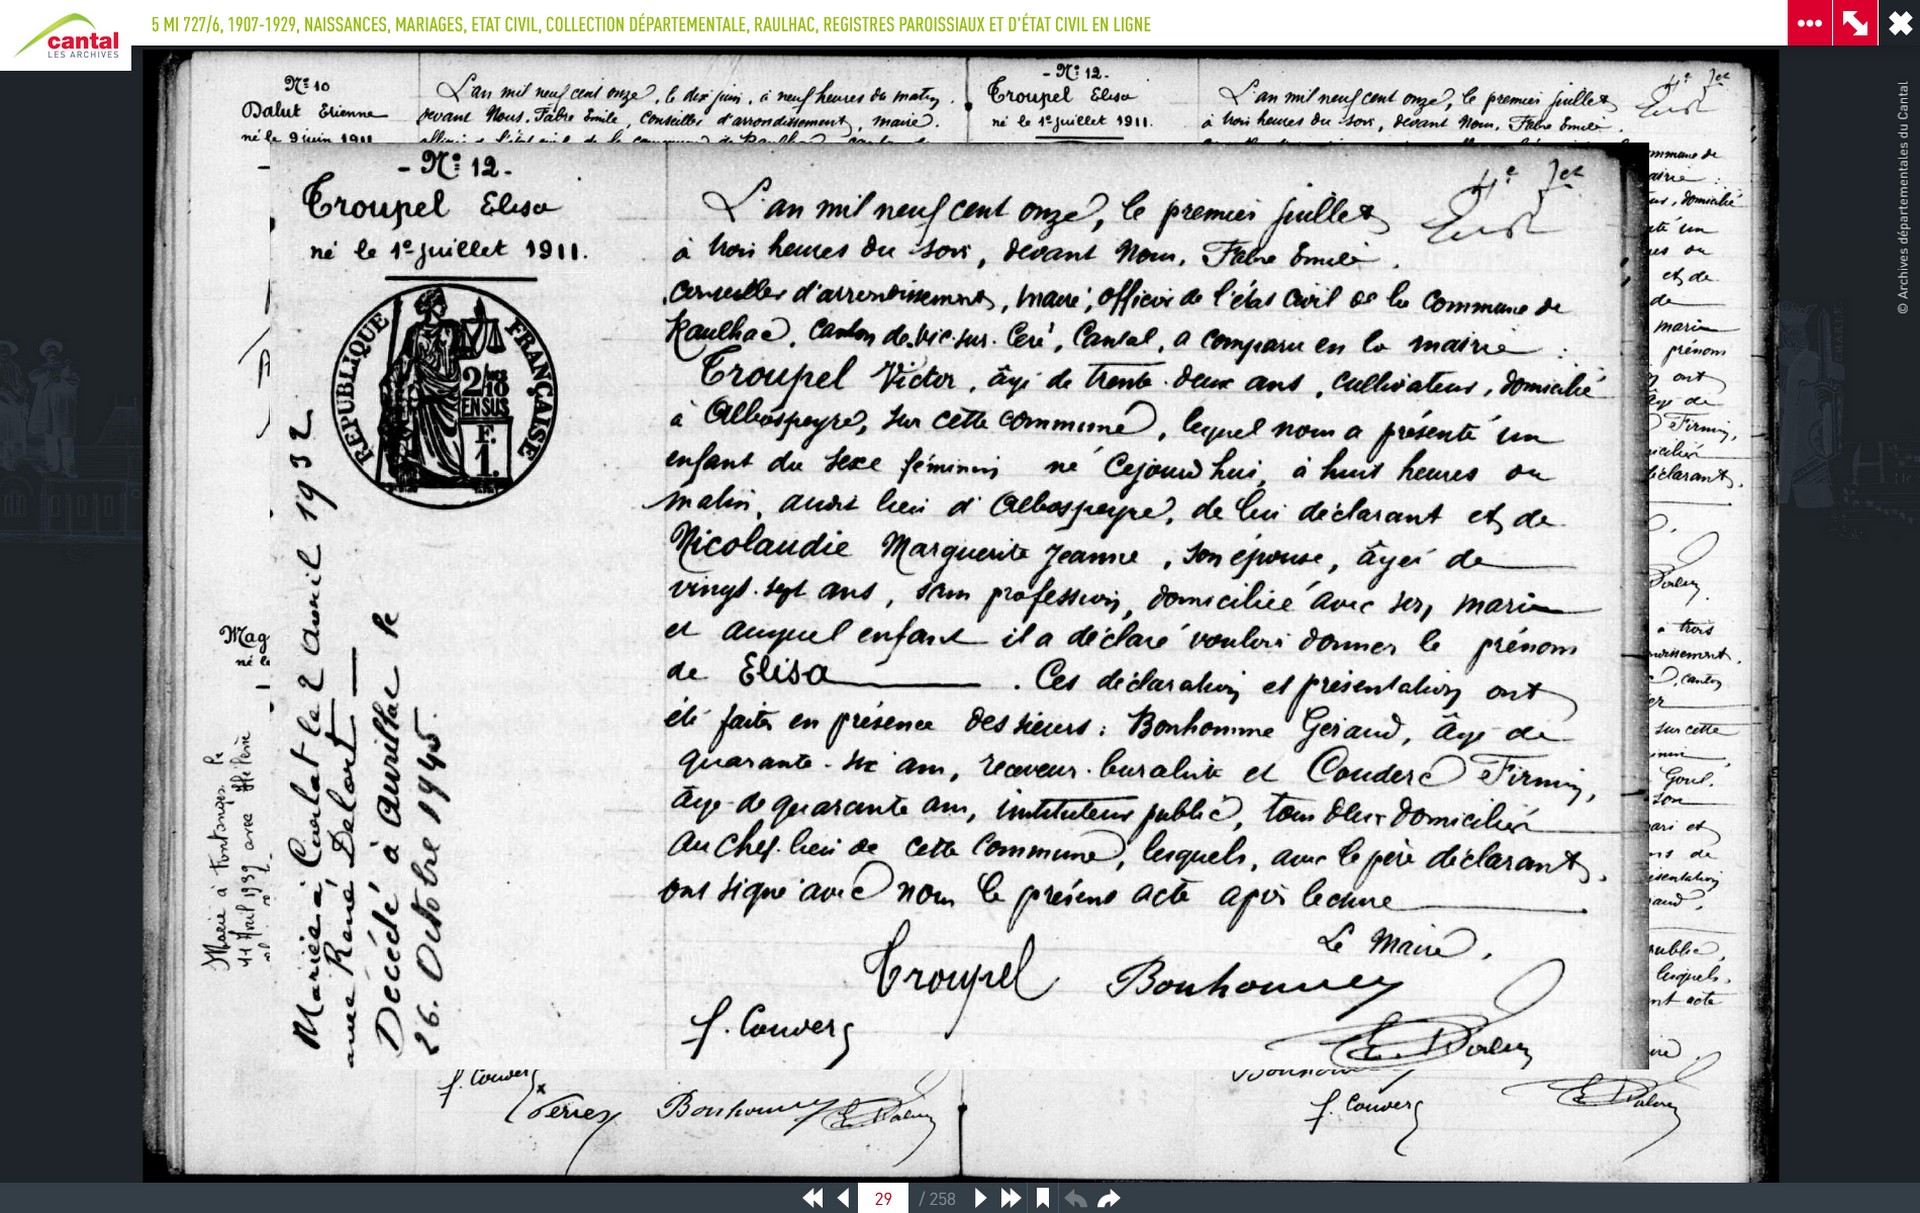 cantal
LES ARCHIVES
5 MI 727/6, 1907-1929, NAISSANCES, MARIAGES, ETAT CIVIL, COLLECTION DÉPARTEMENTALE, RAULHAC, REGISTRES PAROISSIAUX ET D'ÉTAT CIVIL EN LIGNE
© Archives départementales du Cantal
Nº 10
Dalut Etienne
né le 9 juin 1911
L'an mil neuf cent onze, le dix juin, à neuf heures du matin
devant Nous, Fabre Emile, conseiller d'arrondissement, maire
- Nº 12 -
Troupel Elisa
né le 1er juillet 1911.
L'an mil neuf cent onze, le premier juillet
à trois heures du soir, devant Nous, Fabre Emile
- Nº 12 -
Troupel Elisa
né le 1er juillet 1911.
RÉPUBLIQUE FRANÇAISE
2/10
EN SUS
F.
1.
Mariée à Carlat le 2 avril 1932
avec René Delort
Décédé à Aurillac le
26 Octobre 1945.
L'an mil neuf cent onze, le premier juillet
à trois heures du soir, devant Nous, Fabre Emile
conseiller d'arrondissement, maire, officier de l'état civil de la commune de
Raulhac, canton de Vic-sur-Cère, Cantal, a comparu en la mairie :
Troupel Victor, âgé de trente-deux ans, cultivateur, domicilié
à Albospeyre, sur cette commune, lequel nous a présenté un
enfant du sexe féminin né cejourd'hui, à huit heures du
matin, audit lieu d'Albospeyre, de lui déclarant et de
Nicolaudie Marguerite Jeanne, son épouse, âgée de
vingt-sept ans, sans profession, domiciliée avec son mari
et auquel enfant il a déclaré vouloir donner le prénom
de Elisa. Ces déclaration et présentation ont
été faites en présence des sieurs : Bonhomme Geraud, âgé de
quarante-six ans, receveur-buraliste et Couderc Firmin,
âgé de quarante ans, instituteur public, tous deux domiciliés
au chef-lieu de cette commune, lesquels, avec le père déclarant,
ont signé avec nous le présent acte après lecture
Le Maire,
Troupel
Bonhomme
f. Couderc
Marié à Fontanges le
11 Avril 1939 avec Hélène
Mag
né le
f. Couderc
Bonhomme
f. Couderc
29 / 258